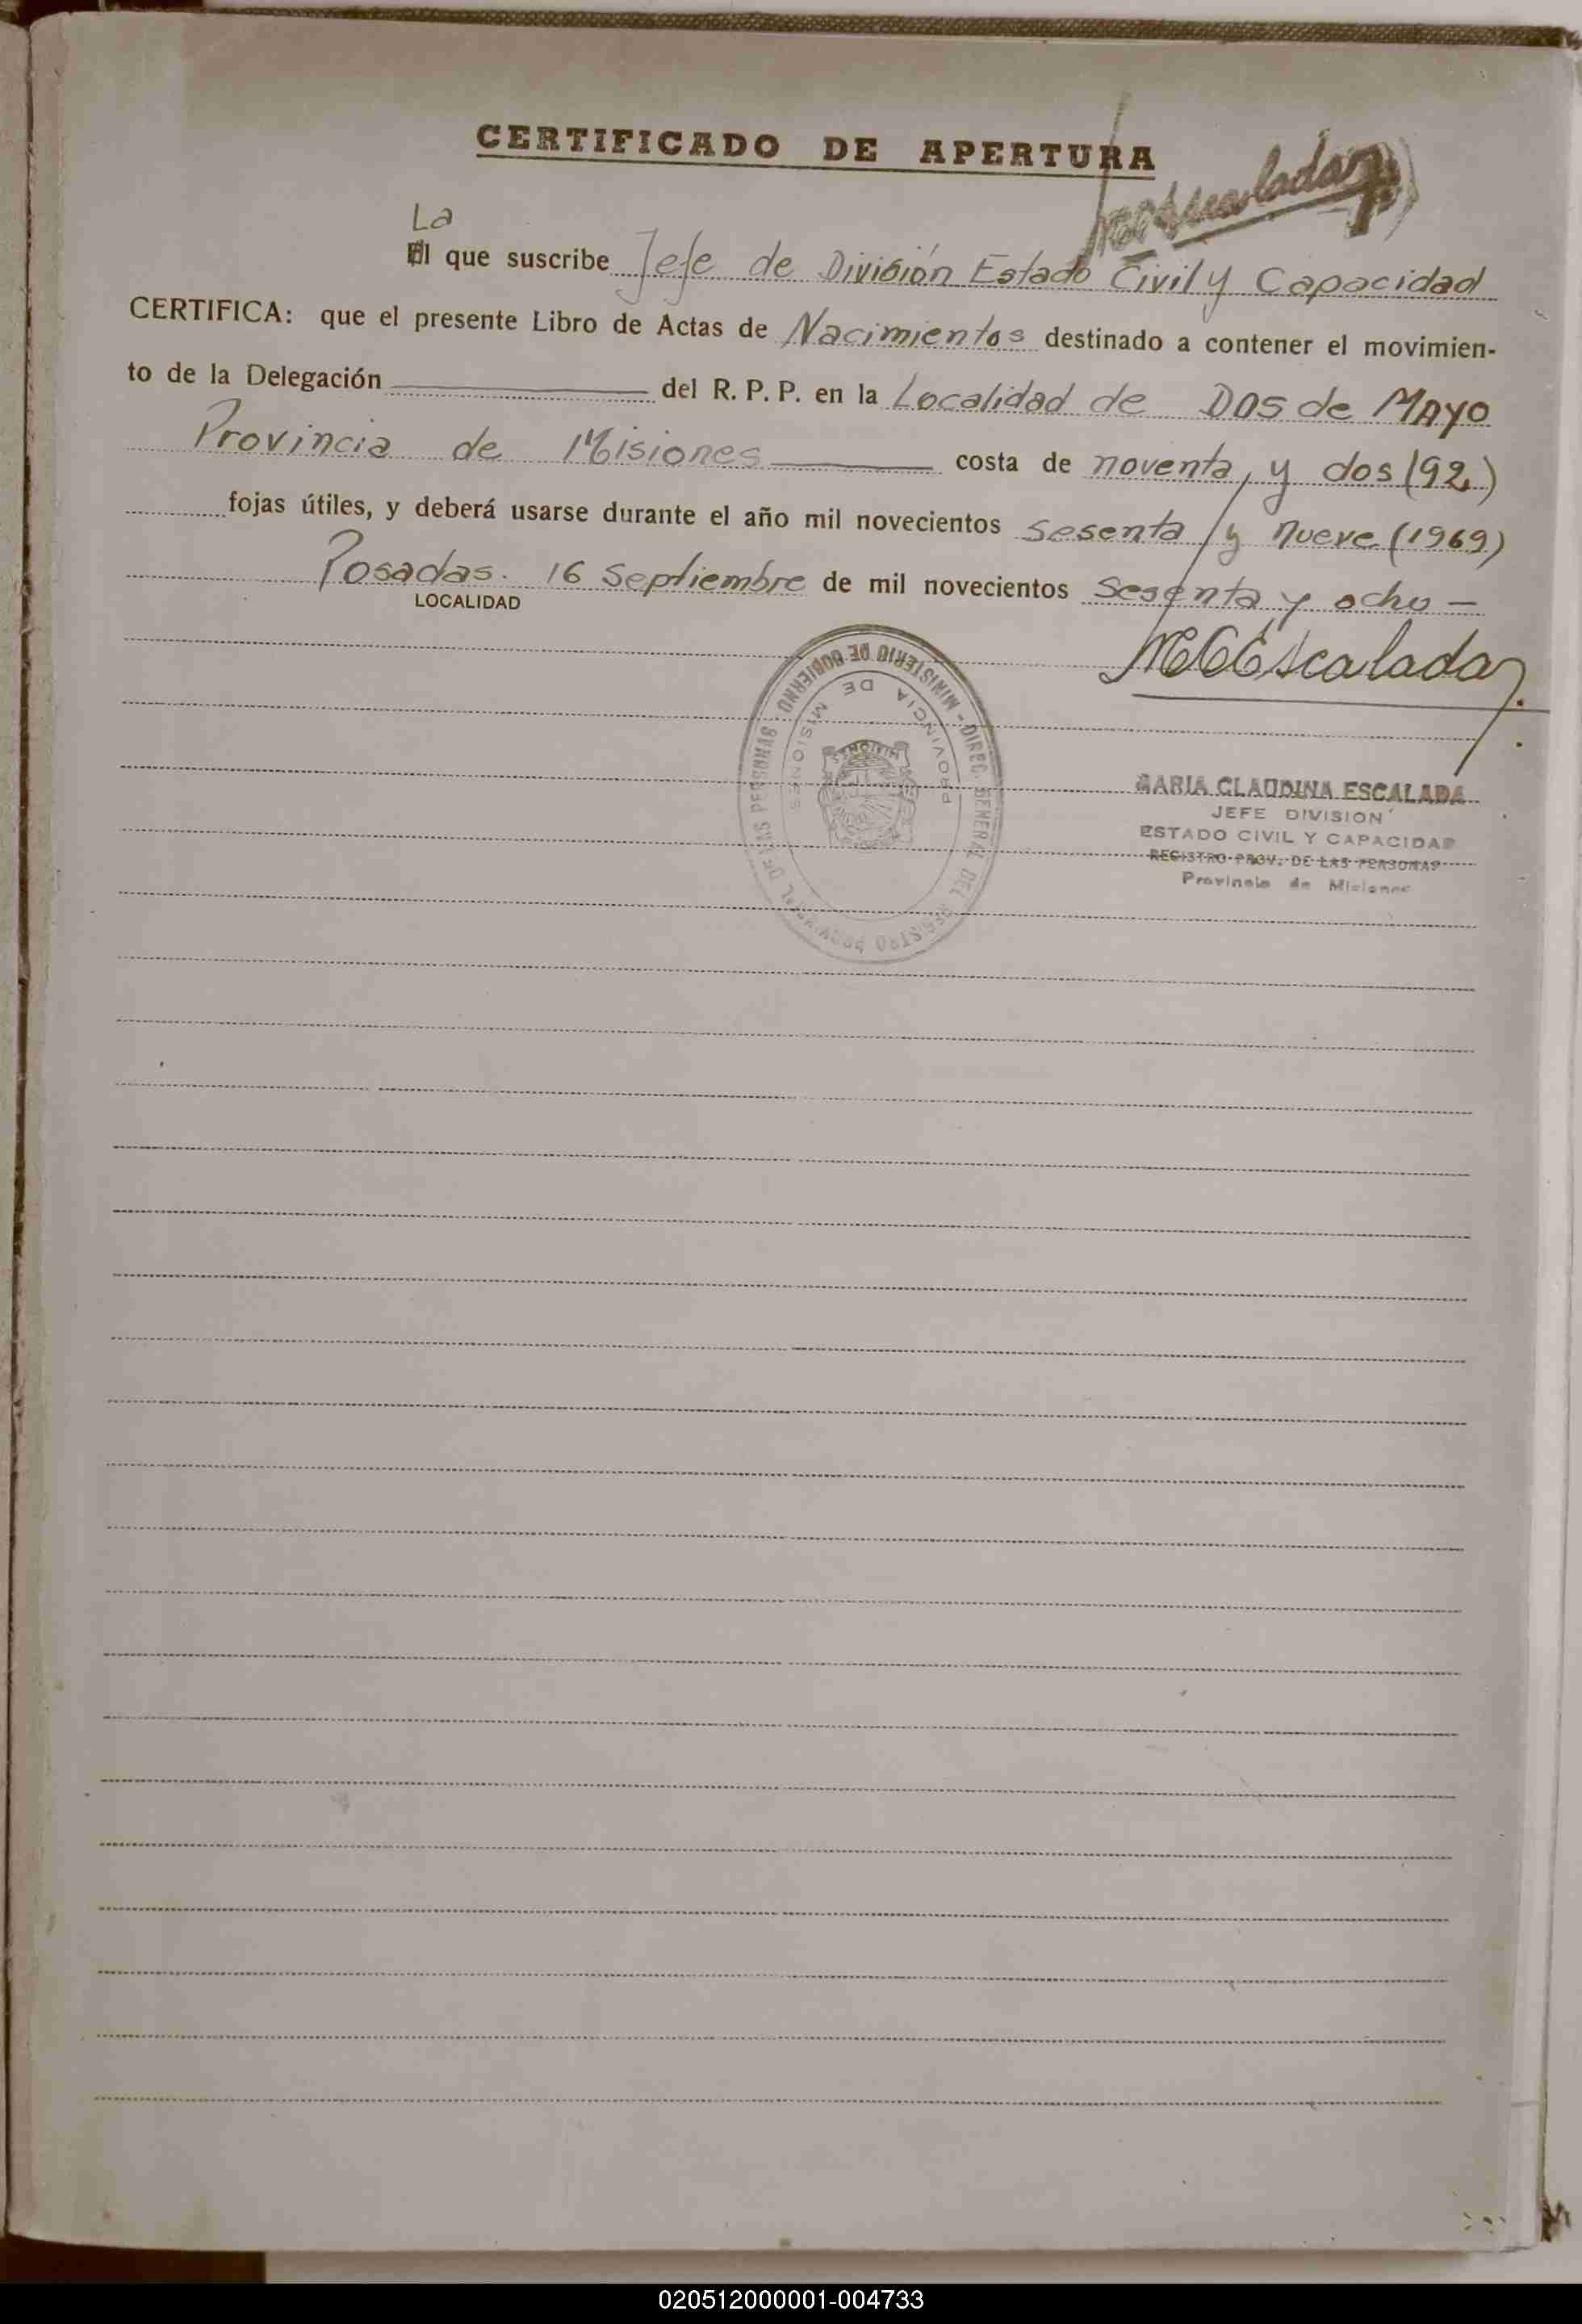 CERTIFICADO DE APERTURA
Escalada
La
El que suscribe Jefe de División Estado Civil y Capacidad
CERTIFICA: que el presente Libro de Actas de Nacimientos destinado a contener el movimien-
to de la Delegación del R. P. P. en la Localidad de DOS de MAYO
Provincia de Misiones costa de noventa y dos (92)
fojas útiles, y deberá usarse durante el año mil novecientos sesenta y nueve (1969)
Posadas. 16 Septiembre de mil novecientos sesenta y ocho —
LOCALIDAD
MCEscalada
MINISTERIO DE GOBIERNO - DIREC. GENERAL DEL REGISTRO PROVINCIAL DE LAS PERSONAS
PROVINCIA DE MISIONES
MARIA CLAUDINA ESCALADA
JEFE DIVISION
ESTADO CIVIL Y CAPACIDAD
REGISTRO PROV. DE LAS PERSONAS
Provincia de Misiones
020512000001-004733